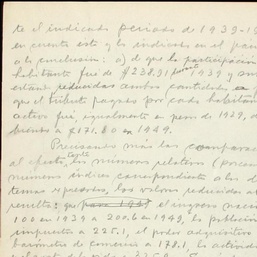 te el indicado período de 1939-19
en cuenta esto y lo indicado en el pár
a la conclusión: a) de que la participación
habitante fué de $238.91 durante 1939 y su
están reducidas ambas cantidades
que el tributo pagado por cada habitan
activo fué, igualmente a peso de 1929, de
bienes a $171.80 en 1949.
Precisando más las comparac
al efecto, en números relativos (porcen
números índices correspondiente a los
temas expuestos, los valores reducidos al
resulta: que el ingreso nacio
100 en 1939 a 200.6 en 1949, la población
impuestos a 225.1, el poder adquisitivo
barómetro de comercio a 178.1, la activida